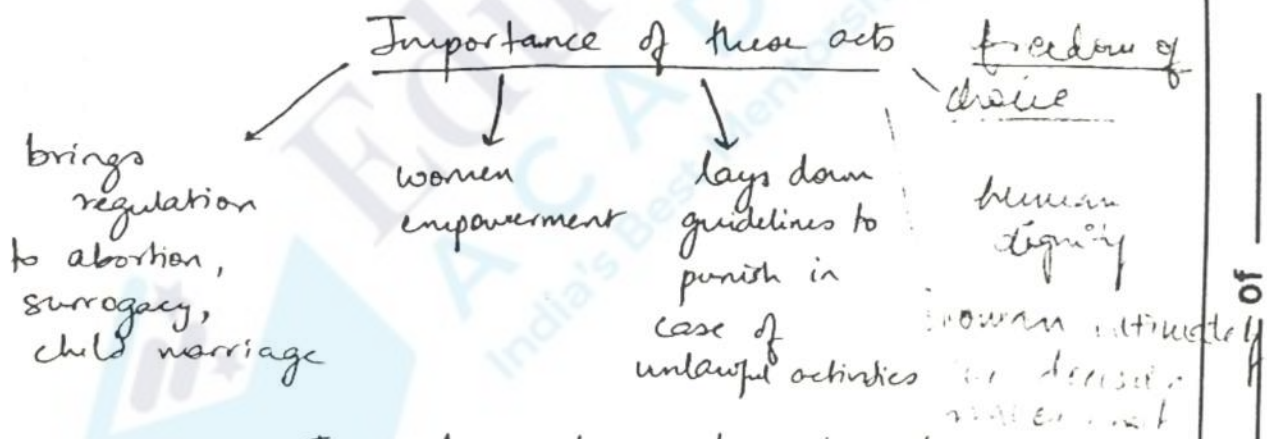 Importance of these acts
freedom of
choice
brings
regulation
to abortion,
surrogacy,
child marriage
women
empowerment
lays down
guidelines to
punish in
case of
unlawful activities
human
dignity
woman ultimately
Edu
ACAD
India's Best Mentorship
of